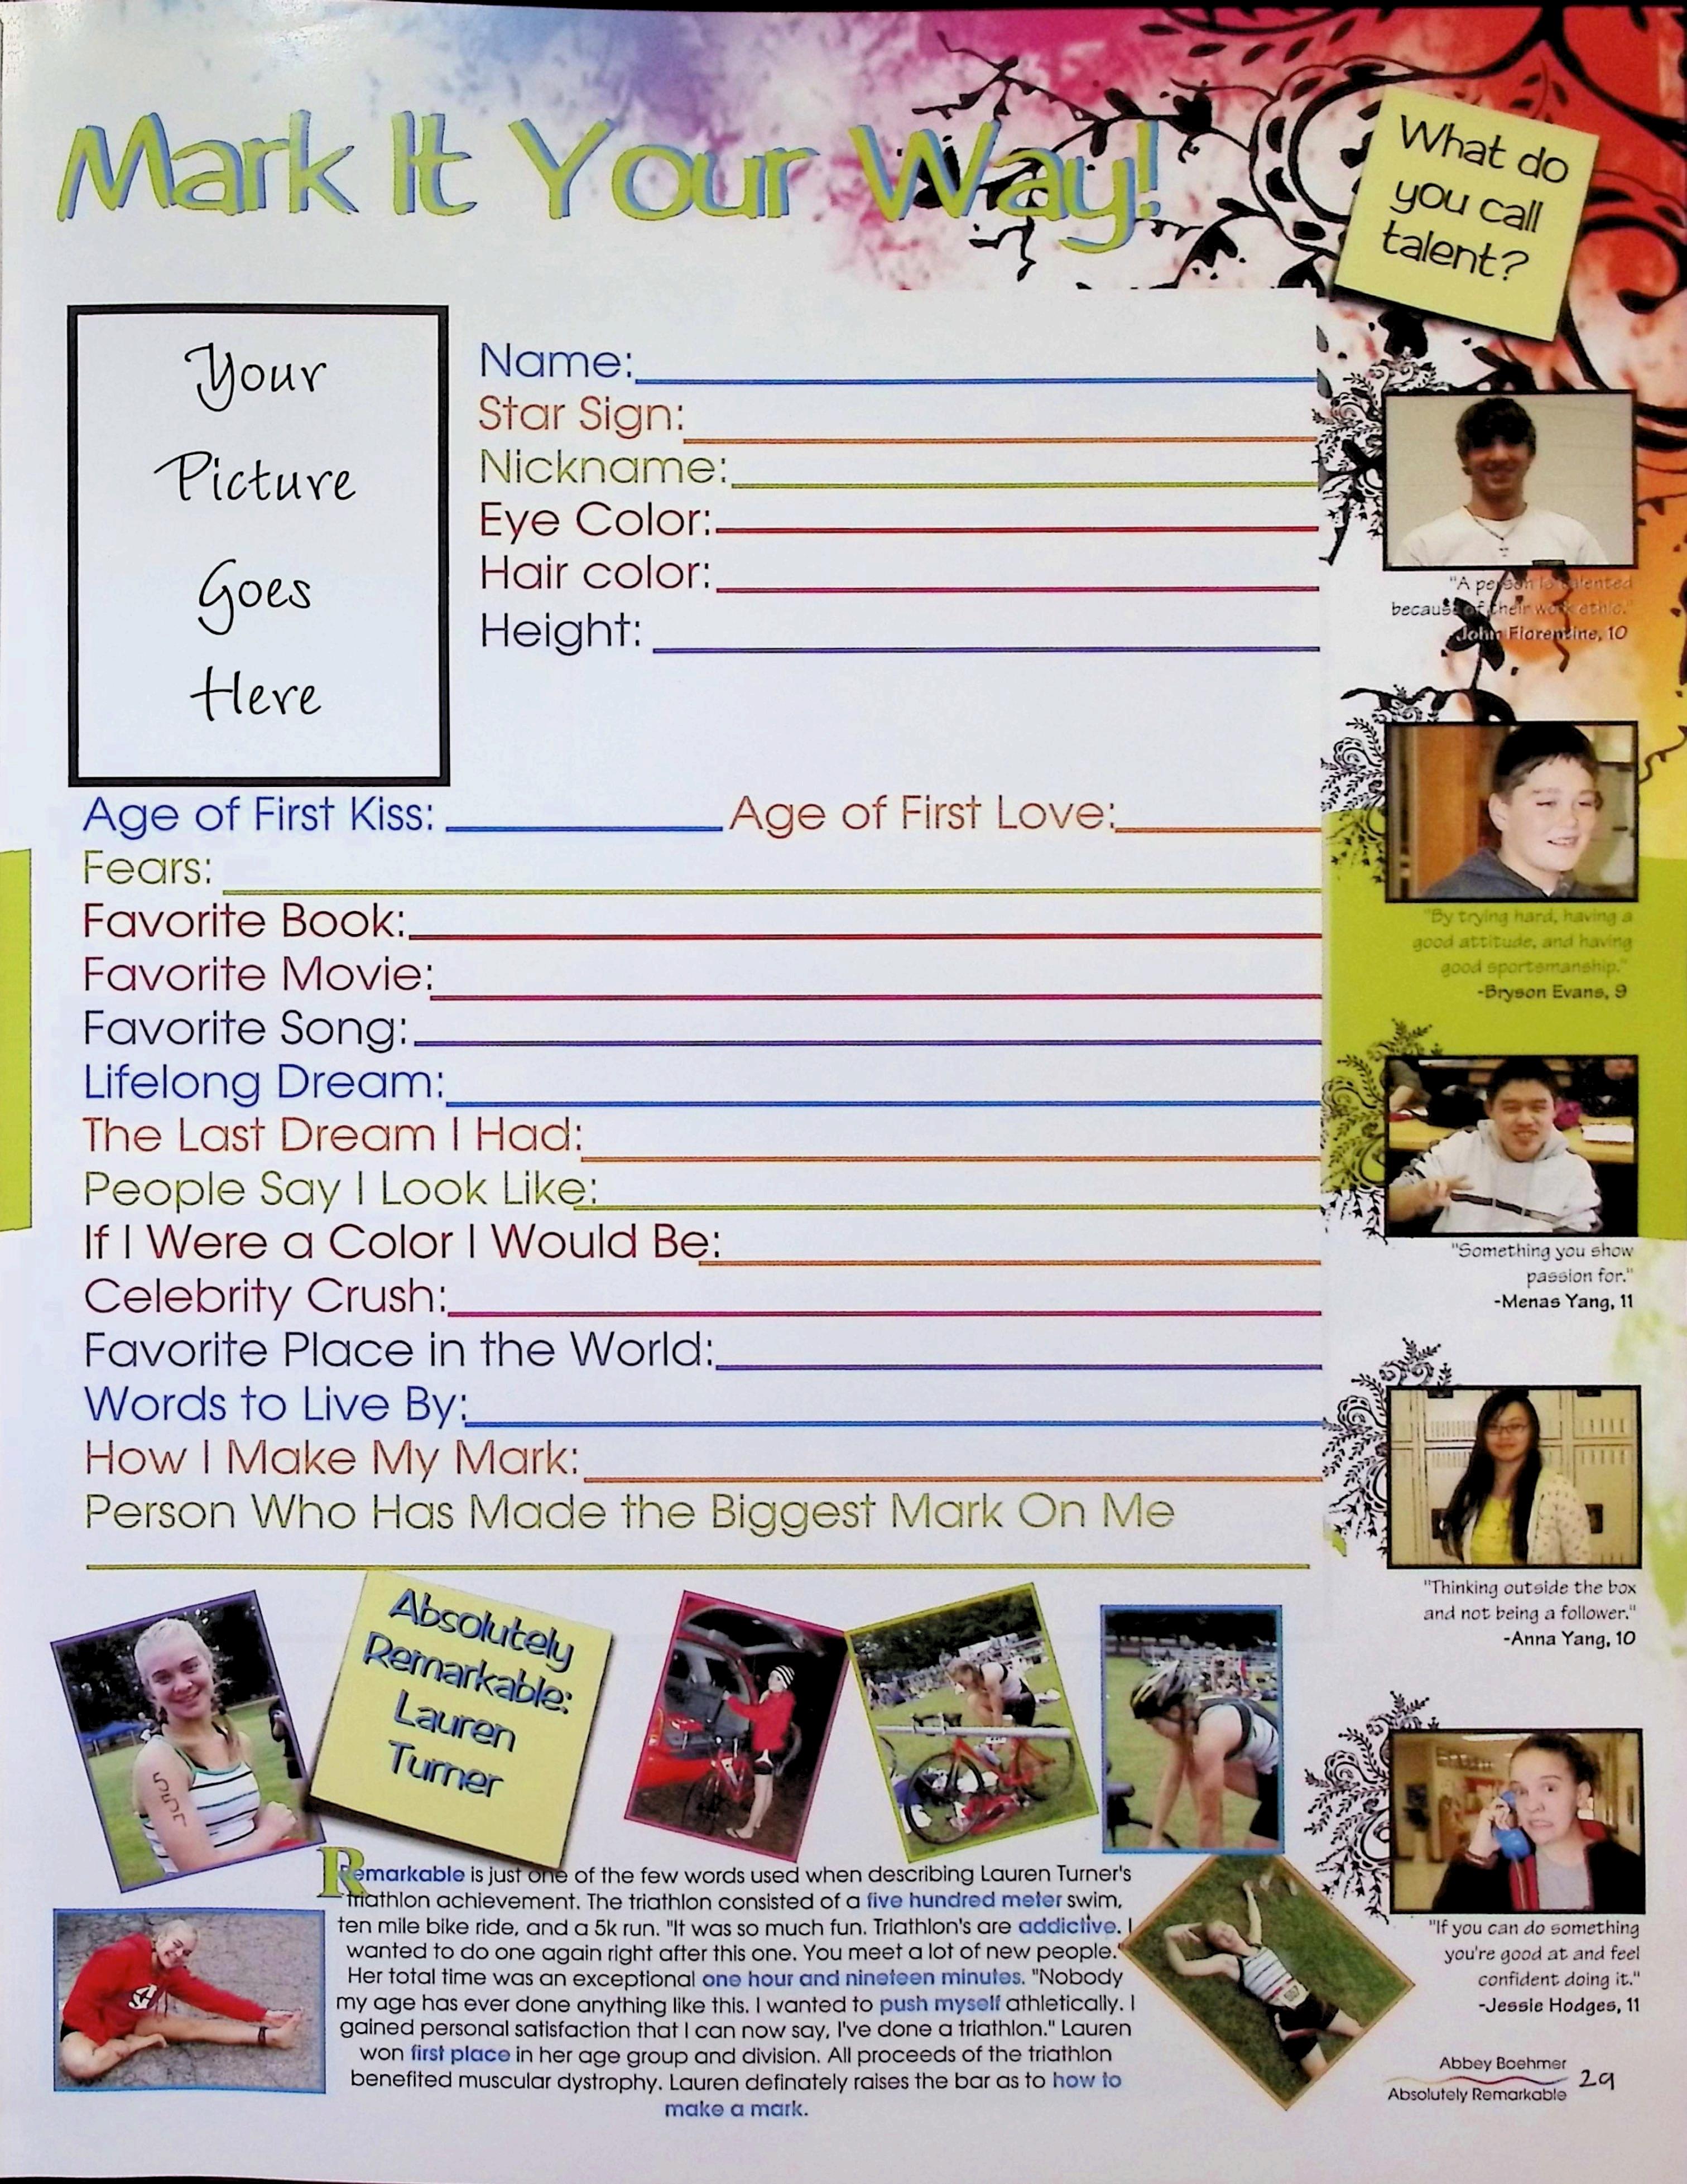 Mark It Your Way!
What do
you call
talent?
Your
Picture
Goes
Here
Name:
Star Sign:
Nickname:
Eye Color:
Hair color:
Height:
Age of First Kiss: Age of First Love:
Fears:
Favorite Book:
Favorite Movie:
Favorite Song:
Lifelong Dream:
The Last Dream I Had:
People Say I Look Like:
If I Were a Color I Would Be:
Celebrity Crush:
Favorite Place in the World:
Words to Live By:
How I Make My Mark:
Person Who Has Made the Biggest Mark On Me
"A person is talented
because of their work ethic."
John Florentine, 10
"By trying hard, having a
good attitude, and having
good sportsmanship."
-Bryson Evans, 9
"Something you show
passion for."
-Menas Yang, 11
"Thinking outside the box
and not being a follower."
-Anna Yang, 10
"If you can do something
you're good at and feel
confident doing it."
-Jessie Hodges, 11
Absolutely
Remarkable:
Lauren
Turner
Remarkable is just one of the few words used when describing Lauren Turner's
triathlon achievement. The triathlon consisted of a five hundred meter swim,
ten mile bike ride, and a 5k run. "It was so much fun. Triathlon's are addictive. I
wanted to do one again right after this one. You meet a lot of new people."
Her total time was an exceptional one hour and nineteen minutes. "Nobody
my age has ever done anything like this. I wanted to push myself athletically. I
gained personal satisfaction that I can now say, I've done a triathlon." Lauren
won first place in her age group and division. All proceeds of the triathlon
benefited muscular dystrophy. Lauren definately raises the bar as to how to
make a mark.
Abbey Boehmer
Absolutely Remarkable 29